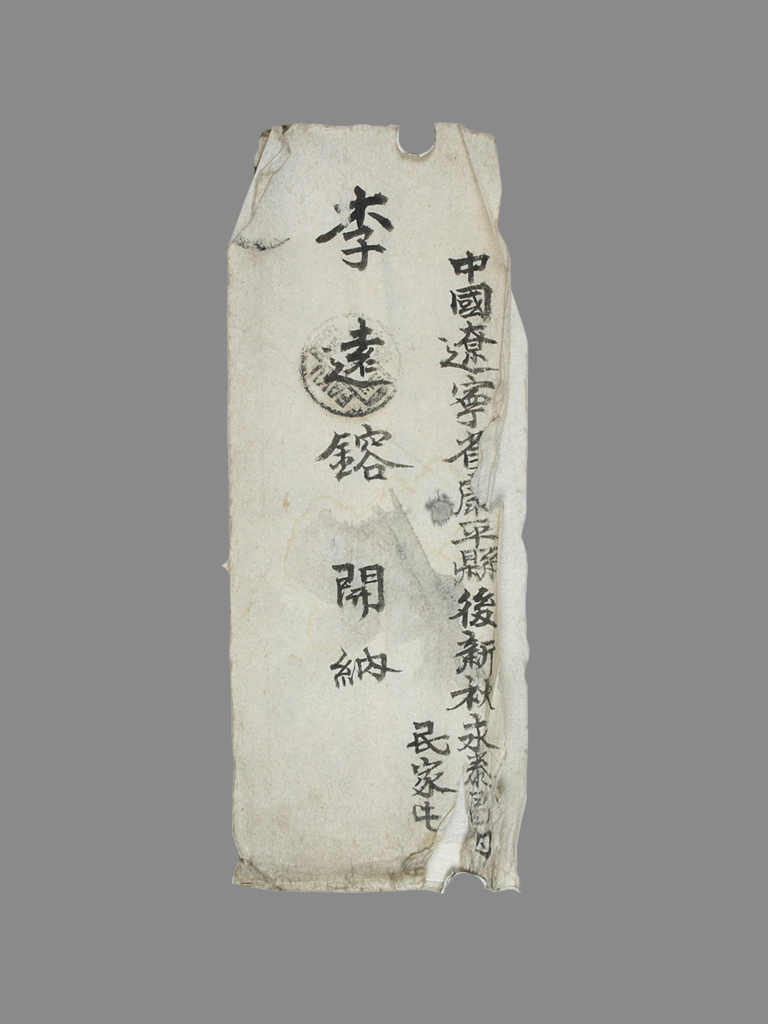 中國遼寧省康平縣後新秋永泰号内
民家屯
李遠鎔開納